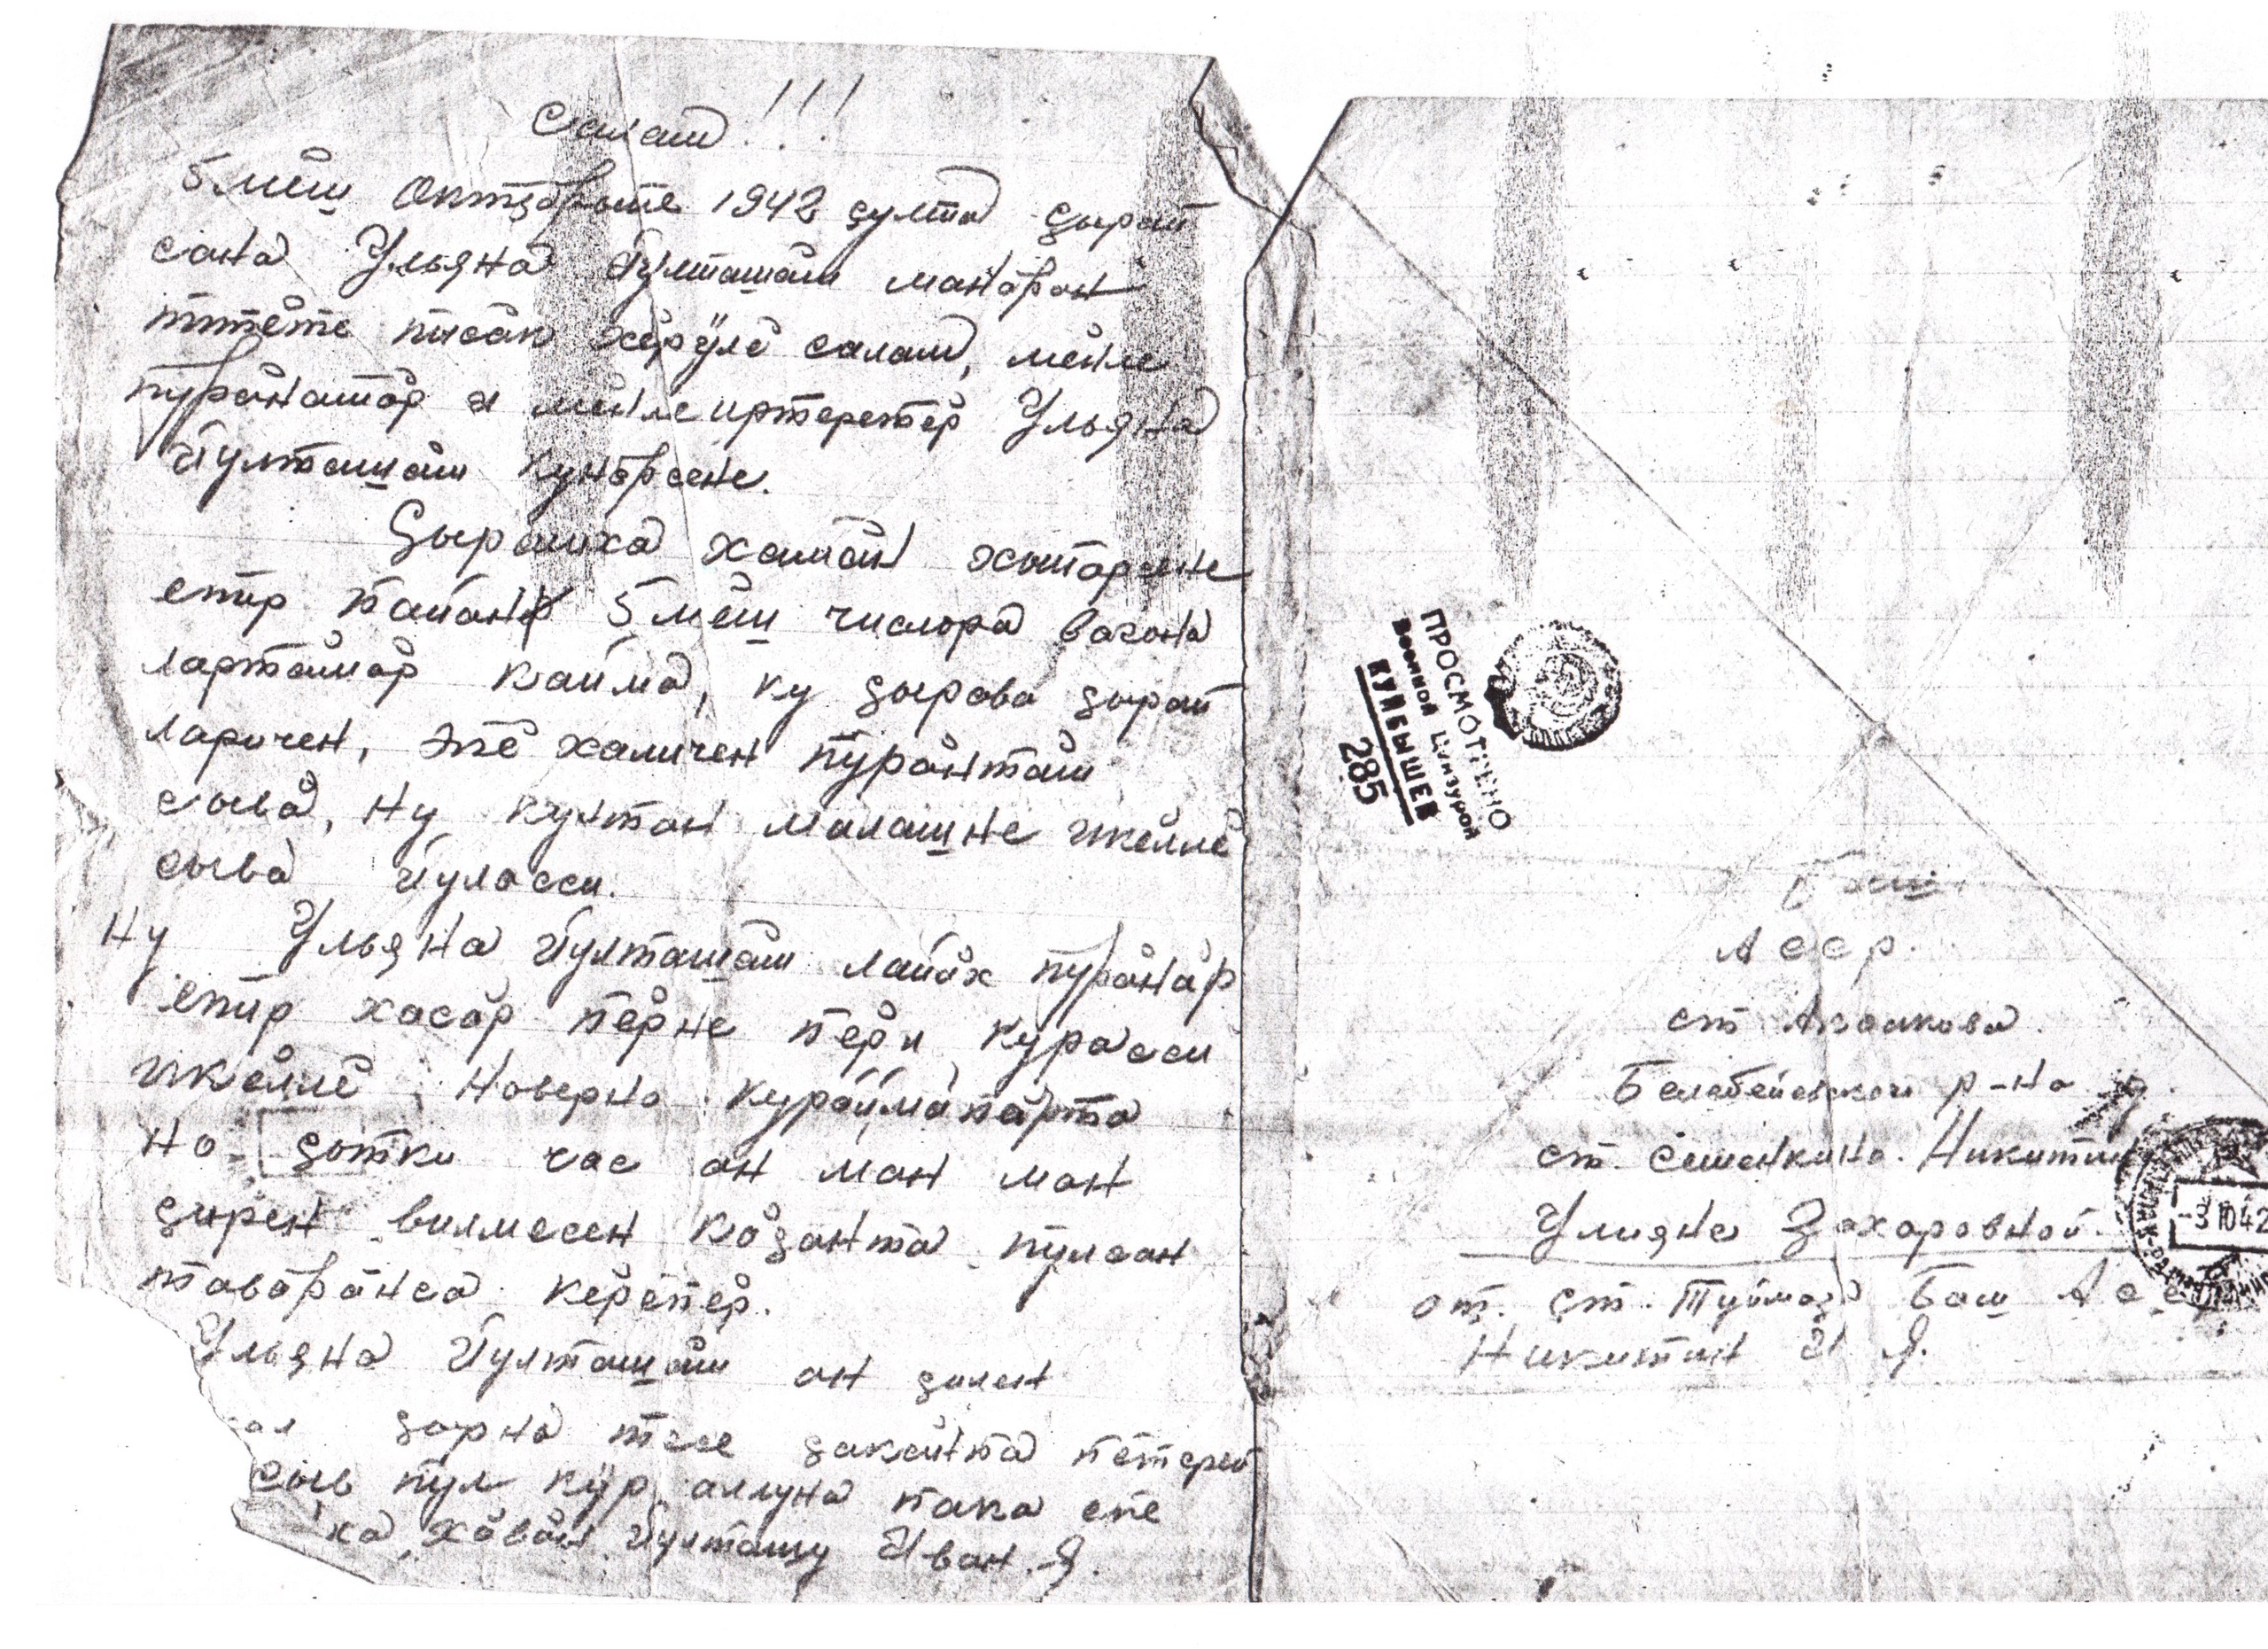 Салам!!!
5 мӗш Октябрьте 1942 ҫулта ҫырат
сана Ульяна Йулташӑм манӑран
питӗте писӑк хӗрӳлӗ салам, мӗнле
пурӑнатӑр и мӗнле иртеретӗр Ульяна
Йулташӑм кунӑрсене.
Ҫырашха хамӑн хыпарсене
епир паян 5 мӗш числора вагона
лартӑмӑр кайма, ку ҫырава ҫырат
ларичен, эпӗ халичен пурӑнтӑм
сыва, ну култан малашне икӗллӗ
сыва йуласси.
Ну Ульяна йулташӑм лайӑх пурӑнӑр
епир хасӑр пӗрне пӗри курасси
икӗллӗ. Наверно кураймӑпӑрта
но ҫотки час ан ман ман
ҫирен вилмесен каҫанта пулсан
таврӑнса керӗпӗр.
Ульяна Йулташӑм ан ҫилен
ҫарна тесе ҫакӑнта пӗтерет
сыв пул кӳр аллуна пака епе
ка, хӑвӑн йулташу Иван. Я.
ПРОСМОТРЕНО
Военной Цензурой
КУЙБЫШЕВ
285
Баш
Асср.
ст Аксакова.
Белебейвский р-на
ст. Семенкина. Никитин
Улияне Захаровной.
-3 10 42
от. ст. Туймаза Баш Асс
Никитин И Я.